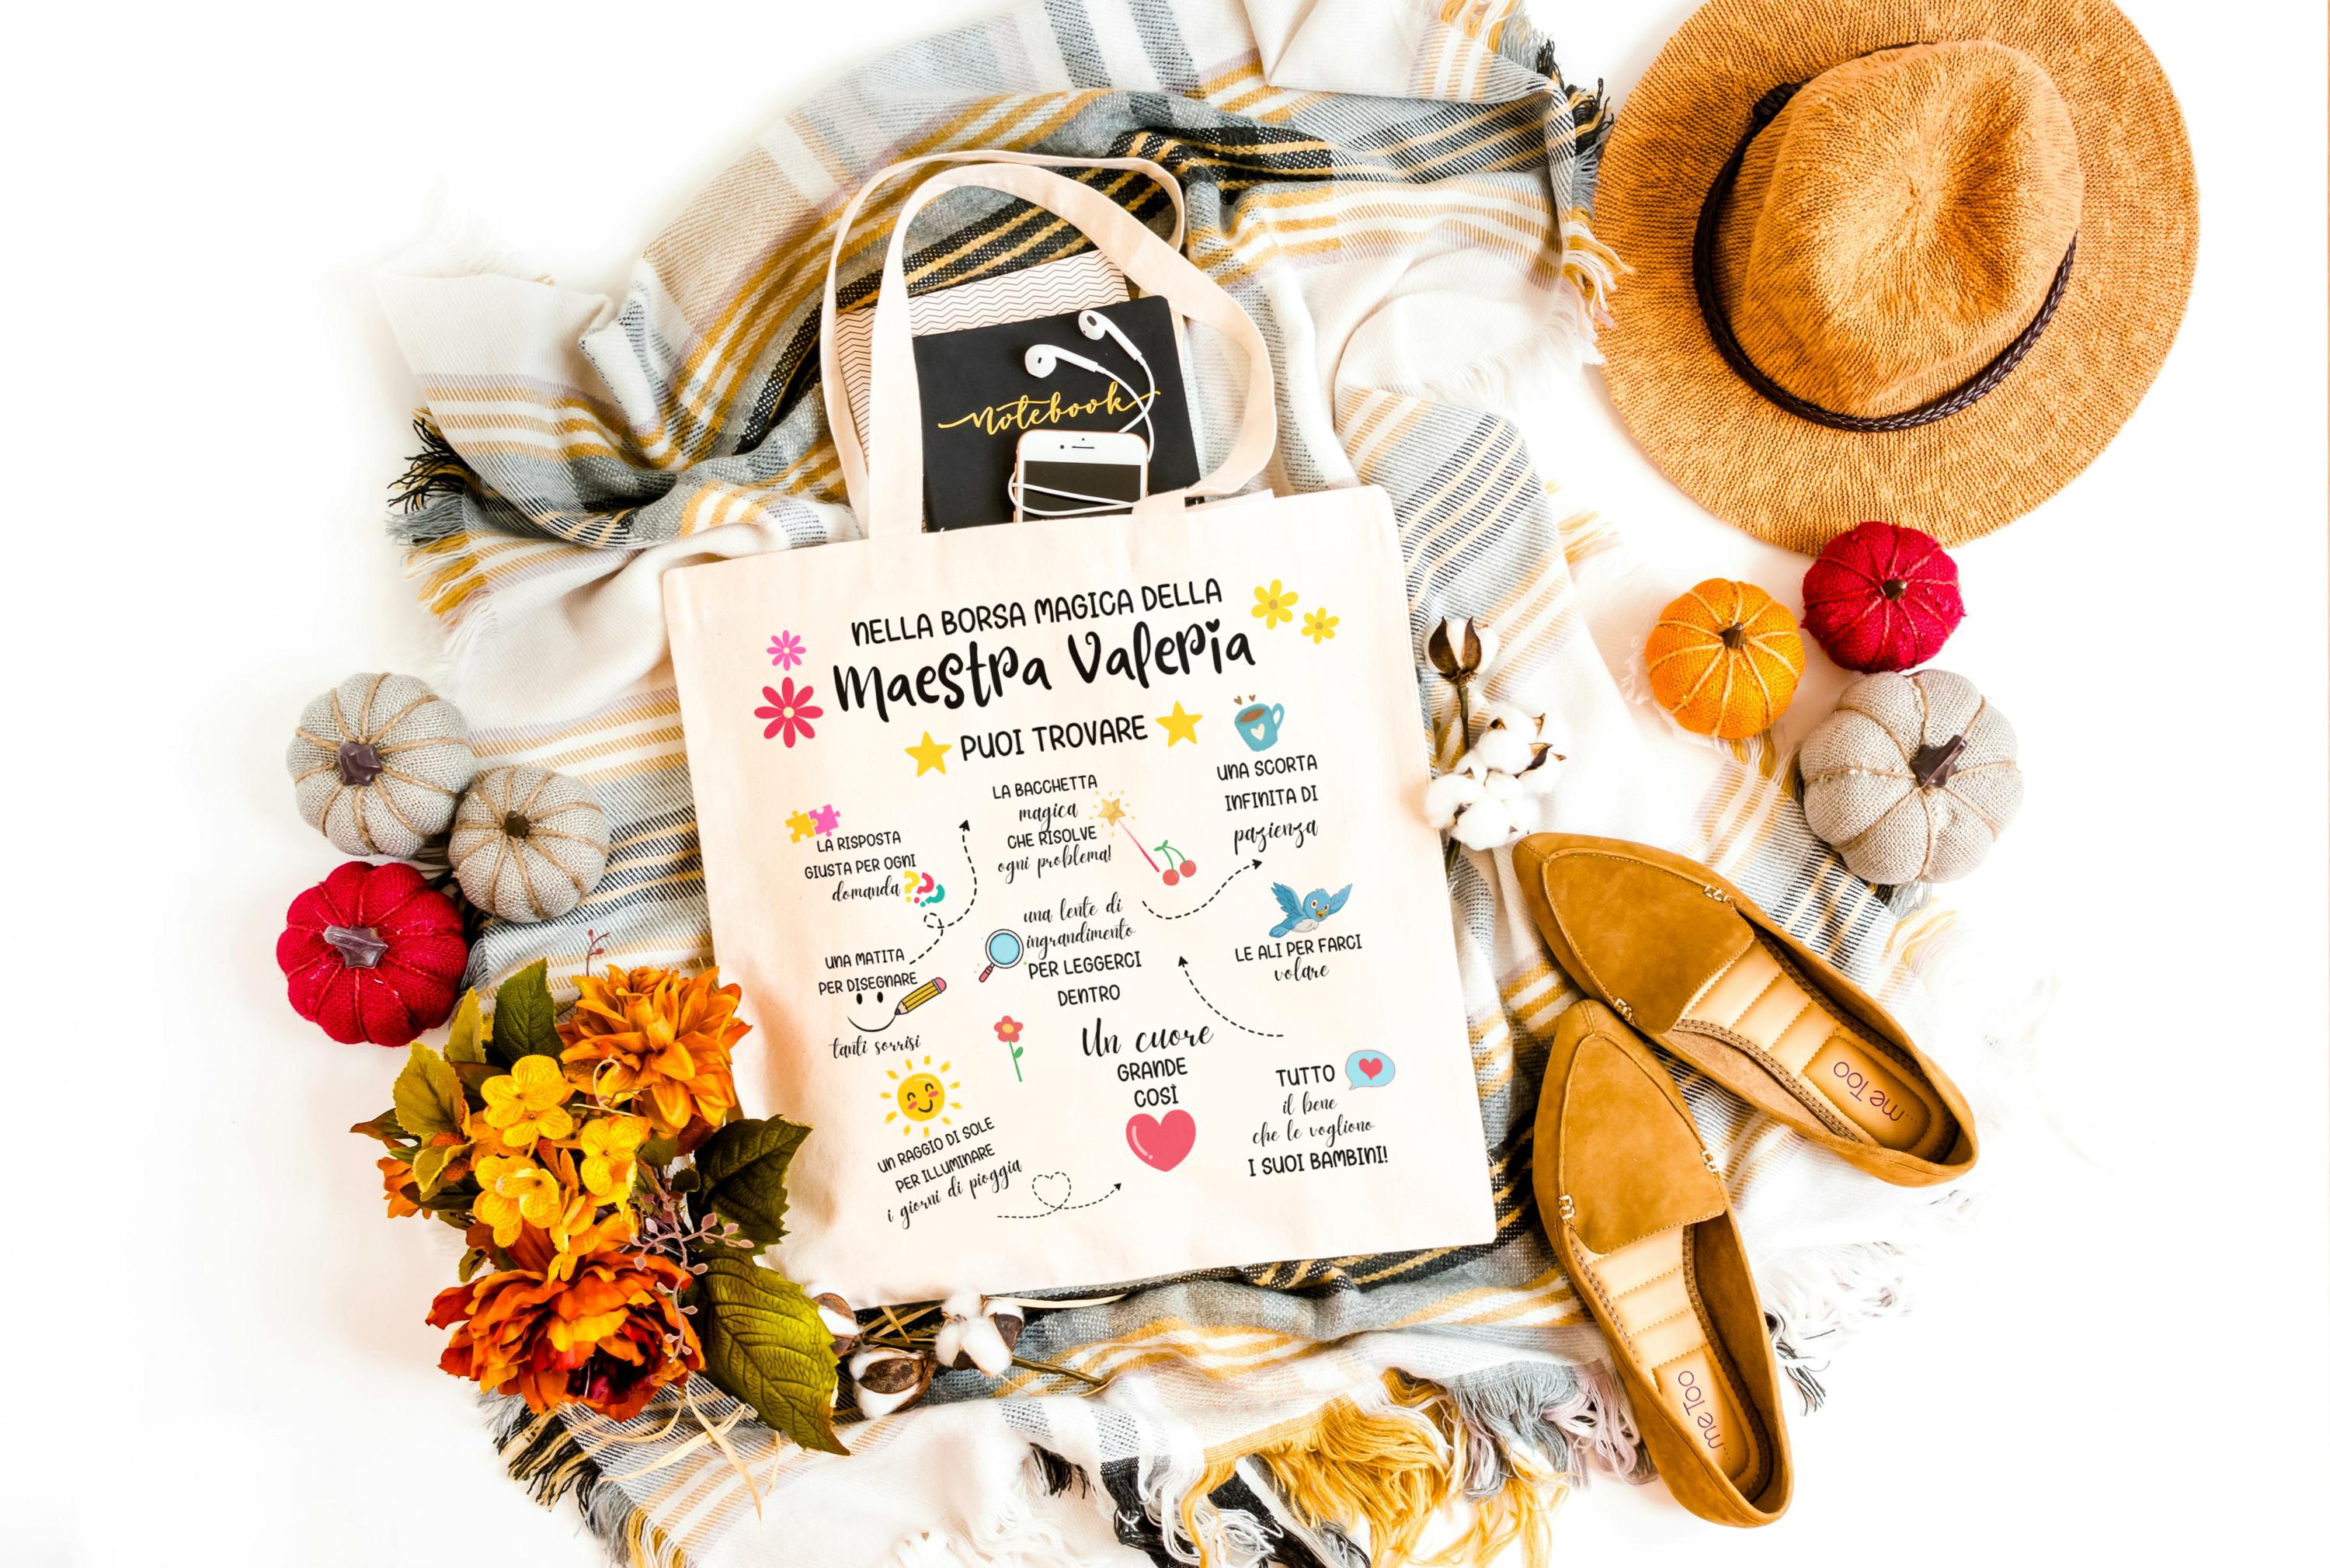 notebook
NELLA BORSA MAGICA DELLA
Maestra Valeria
PUOI TROVARE
LA RISPOSTA
GIUSTA PER OGNI
domanda
???
LA BACCHETTA
magica
CHE RISOLVE
ogni problema!
UNA SCORTA
INFINITA DI
pazienza
UNA MATITA
PER DISEGNARE
tanti sorrisi
una lente di
ingrandimento
PER LEGGERCI
DENTRO
LE ALI PER FARCI
volare
UN RAGGIO DI SOLE
PER ILLUMINARE
i giorni di pioggia
Un cuore
GRANDE
COSÌ
TUTTO
il bene
che le vogliono
I SUOI BAMBINI!
...me Too
...me Too